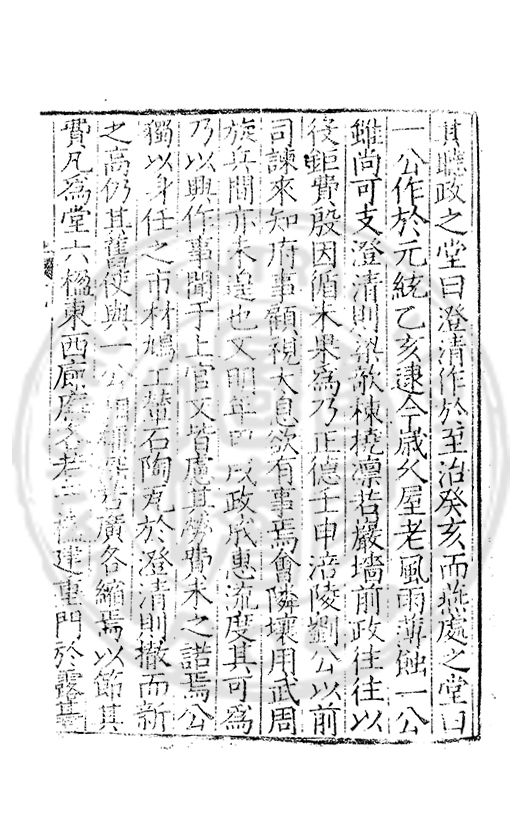 其聽政之堂曰澄清作於至治癸亥而燕處之堂曰
一公作於元統乙亥逮今歲久屋老風雨薄蝕一公
雖尚可支澄清則梁欹棟撓凛若巖墻前政往往以
役鉅費殷因循未果為乃正德壬申涪陵劉公以前
司諫來知府事顧視大息欲有事焉會隣壤用武周
旋兵間亦未遑也又明年甲戌政成惠流度其可為
乃以興作事聞于上官又皆慮其勞費未之諾焉公
獨以身任之市材鳩工輦石陶瓦於澄清則撤而新
之高仍其舊使與一公相稱廣各縮焉以節其
費凡為堂六楹東西廊廡各若干楹建重門於露臺